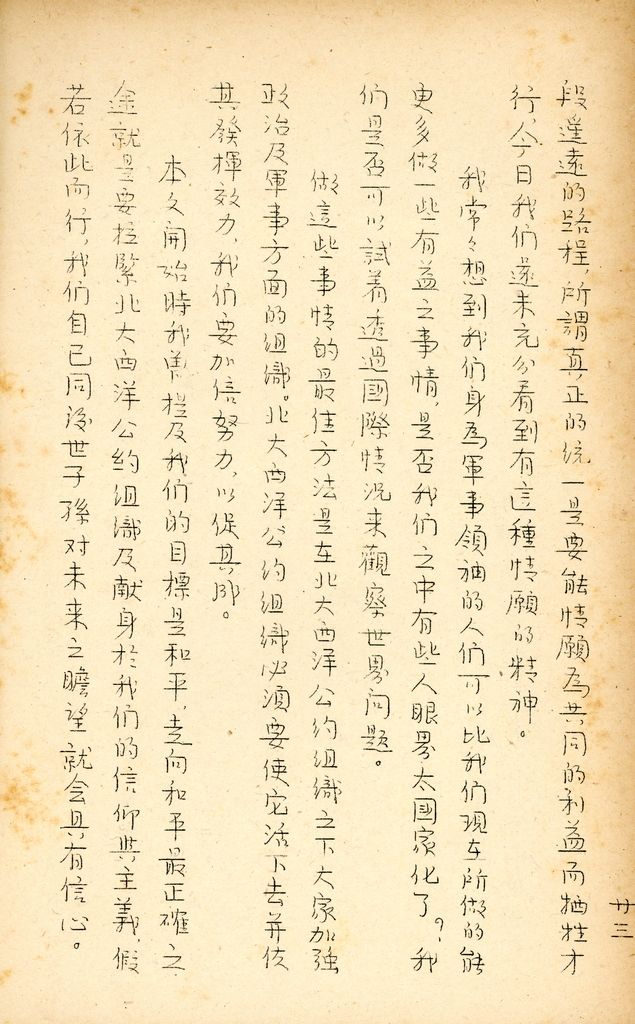 廿三
段遙遠的路程，所謂真正的統一是要能情願為共同的利益而牺牲才
行，今日我们還未充分看到有這種情願的精神。
我常々想到我们身為軍事領袖的人们可以比我们現在所做的能
更多做一些有益之事情，是否我们之中有些人眼界太国家化了？我
们是否可以試着透過國際情况来觀察世界问题。
做這些事情的最佳方法是在北大西洋公约组織之下大家加強
政治及軍事方面的组織。北大西洋公约组織必須要使它活下去并使
其發揮效力，我们要加倍努力，以促其成。
本文開始時我曾提及我们的目標是和平，走向和平最正確之
途就是要拉緊北大西洋公约组織及献身於我们的信仰與主義，假
若依此而行，我们自己同後世子孫对未来之瞻望就会具有信心。